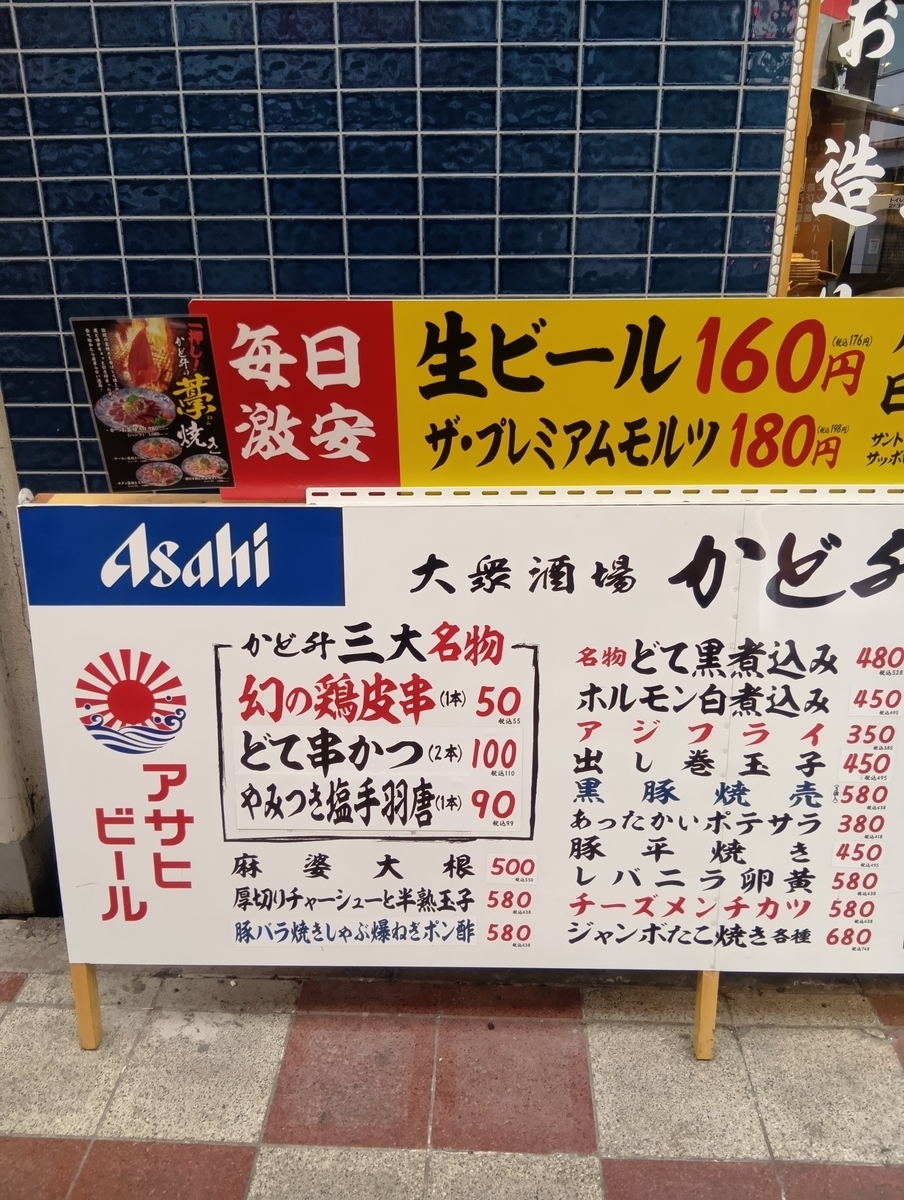 お
造
一押し!
かど升の
藁焼き
毎日
激安
生ビール 160円 (税込176円)
ザ・プレミアムモルツ 180円 (税込198円)
サント
サッポ
Asahi
大衆酒場 かど升
アサヒ
ビール
かど升 三大名物
幻の鶏皮串(1本) 50 税込55
どて串かつ(2本) 100 税込110
やみつき塩手羽唐(1本) 90 税込99
麻婆大根 500 税込550
厚切りチャーシューと半熟玉子 580 税込638
豚バラ焼きしゃぶ爆ねぎポン酢 580 税込638
名物どて黒煮込み 480 税込528
ホルモン白煮込み 450 税込495
アジフライ 350 税込385
出し巻玉子 450 税込495
黒豚焼売 580 税込638
あったかいポテサラ 380 税込418
豚平焼き 450 税込495
レバニラ卵黄 580 税込638
チーズメンチカツ 580 税込638
ジャンボたこ焼き各種 680 税込748